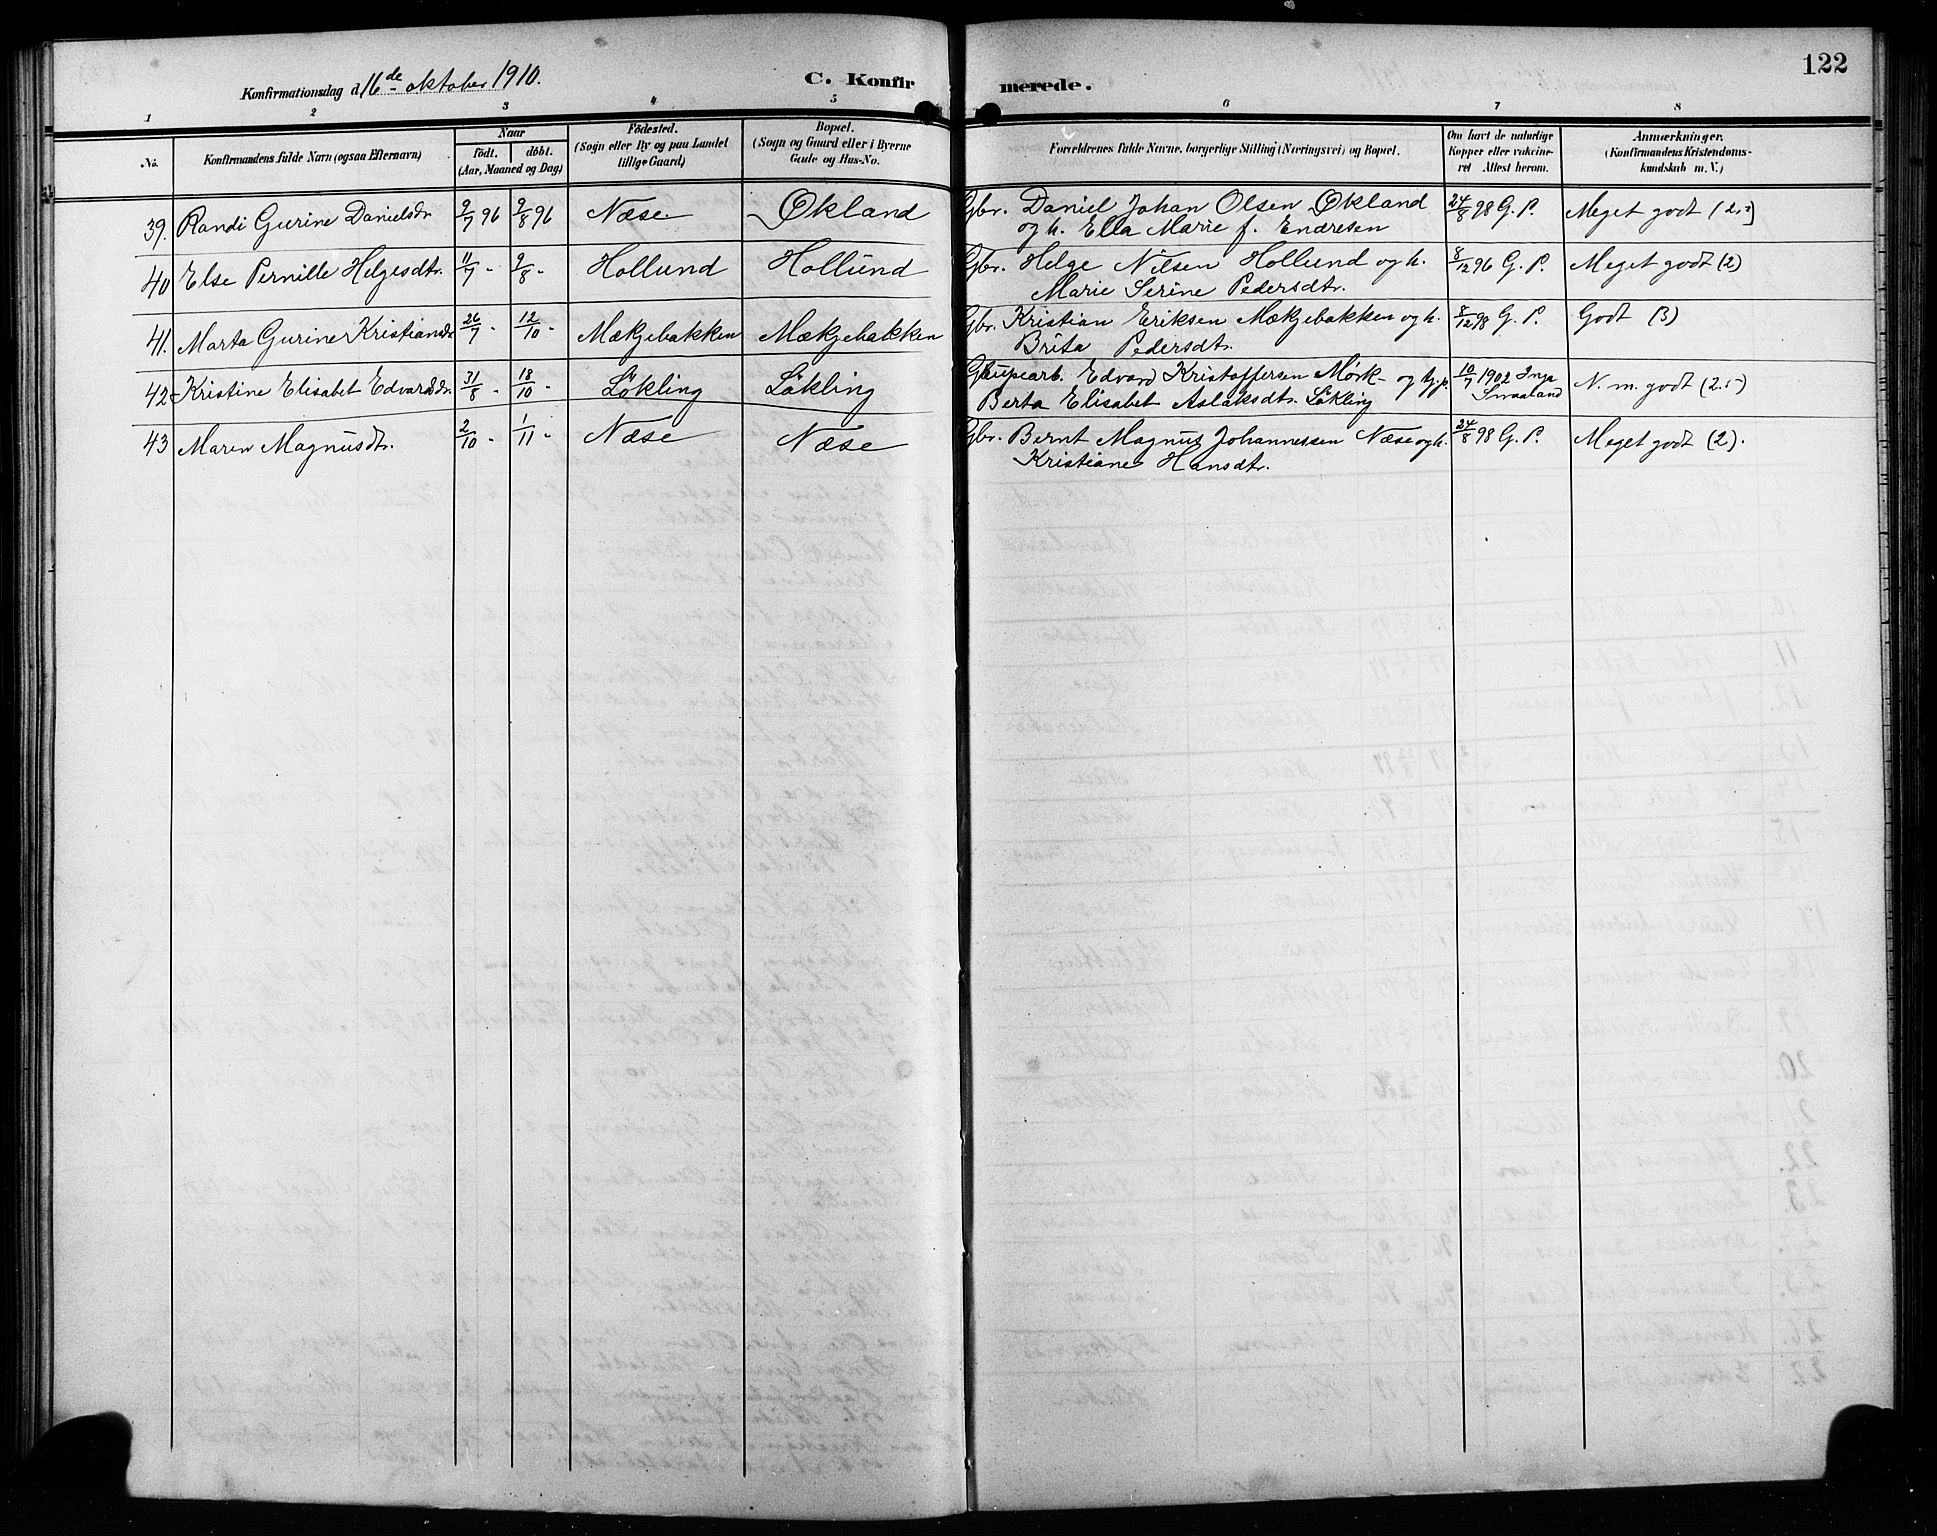 122
Konfirmationsdag d. 16de oktober 1910. C. Konfir merede.
1 2 3 4 5 6 7 8
No. Konfirmandens fulde Navn (ogsaa Efternavn) Naar födt. döbt. (Aar, Maaned og Dag) Födested. (Sogn eller By og paa Landet tillige Gaard) Bopæl. (Sogn og Gaard eller i Byerne Gade og Hus-No. Forældrenes fulde Navne, borgerlige Stilling (Næringsvei) og Bopæl. Om havt de naturlige Kopper eller vakcineret Attest herom. Anmærkninger. (Konfirmandens Kristendomskundskab m. V.)
39. Randi Gurine Danielsdr 9/7 96 9/8 96 Næse. Økland Gbr. Daniel Johan Olsen Økland 24/8 98 G. P. Meget godt
og h. Ella Marie f. Endresen
40 Else Pernille Helgesdtr. 11/7 - 9/8 - Hollund Hollund Gbr. Helge Nilsen Hollund og h. 8/12 96 G. P. Meget godt (2)
Marie Serine Pedersdtr.
41. Marta Gurine Kristiansdr 26/7 - 12/10 - Mækjebakken Mækjebakken Gbr. Kristian Eriksen Mækjebakken og h. 8/12 98 G. P. Godt (3)
Brita Pedersdtr.
42 Kristine Elisabet Edvardsdr. 31/8 - 18/10 - Løkling Løkling Edvard Kristoffersen Mørk- og 10/7 1902 Inga
Berta Elisabet Aslaksdtr. Løkling Smaaland N. m. godt
43 Maren Magnusdtr. 2/10 - 1/11 - Næse Næse Gbr. Bernt Magnus Johannessen Næse og h. 24/8 98 G. P. Meget godt (2).
Kristiane Hansdtr.